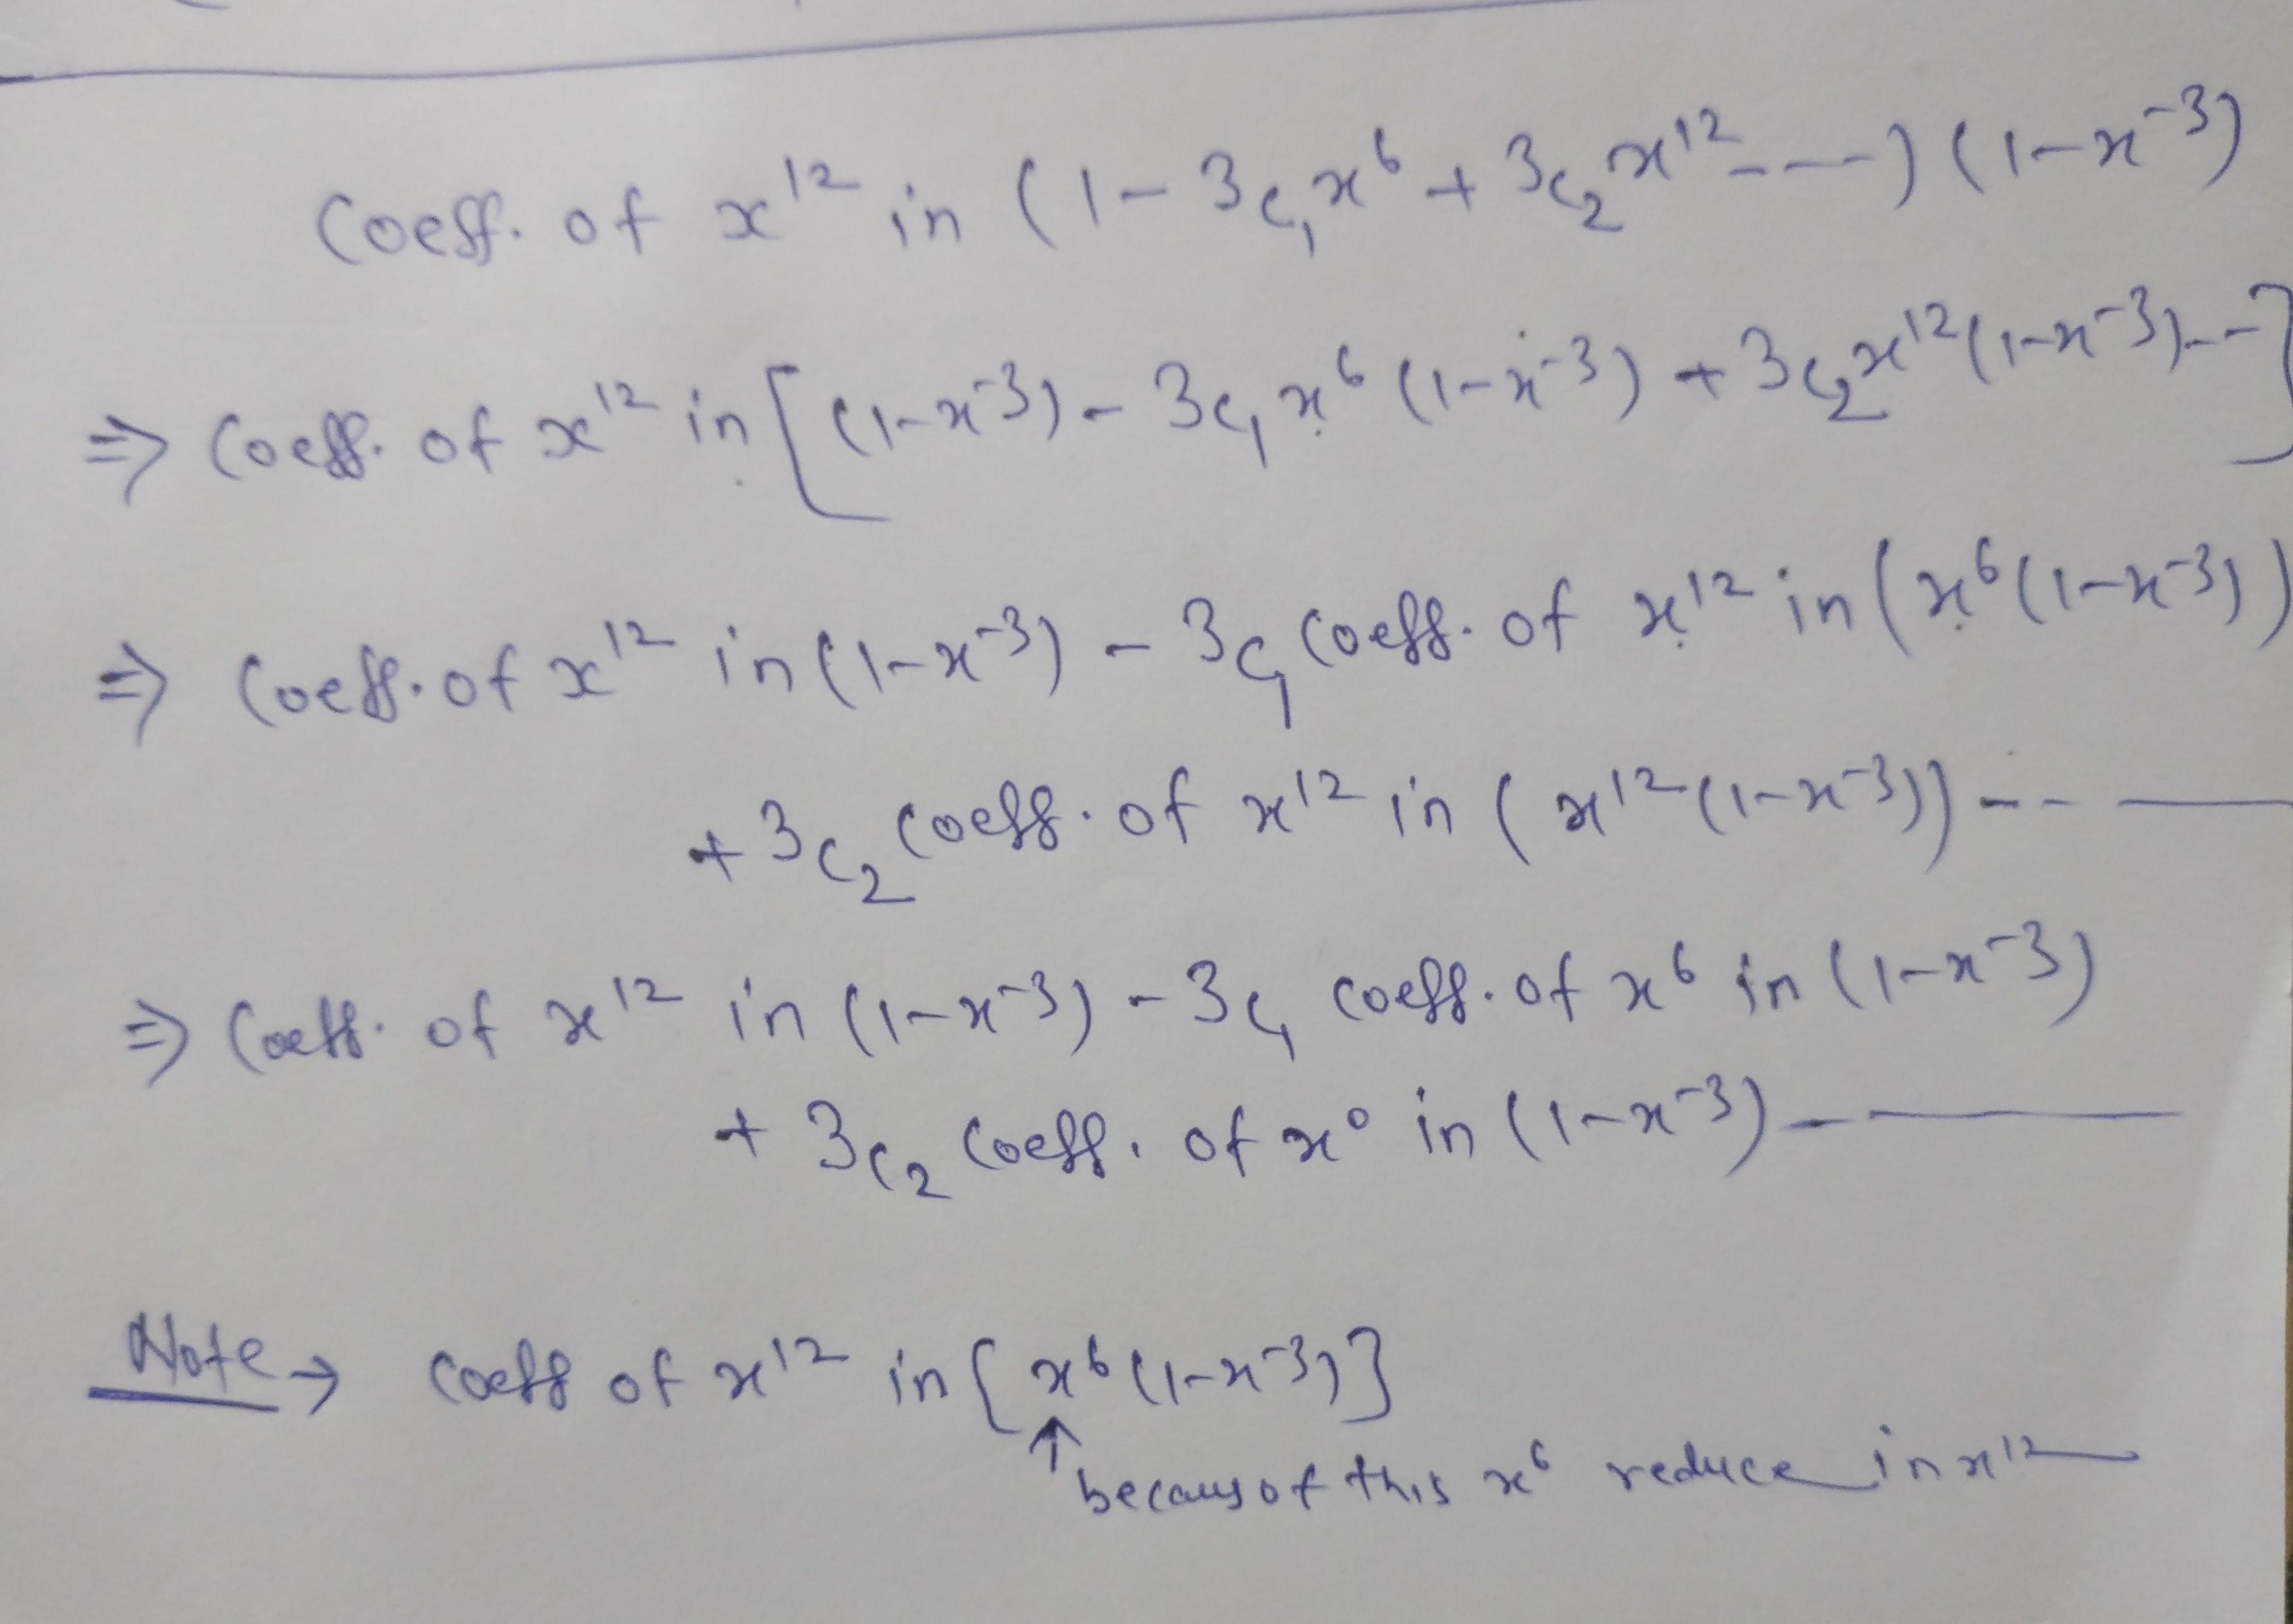 Coeff. of x¹² in (1 - 3c₁x⁶ + 3c₂x¹² ----) (1-x⁻³)
⇒ Coeff. of x¹² in [(1-x⁻³) - 3c₁x⁶(1-x⁻³) + 3c₂x¹²(1-x⁻³)---]
⇒ Coeff. of x¹² in (1-x⁻³) - 3c₁ Coeff. of x¹² in (x⁶(1-x⁻³))
+ 3c₂ Coeff. of x¹² in (x¹²(1-x⁻³)) -- —
⇒ Coeff. of x¹² in (1-x⁻³) - 3c₁ Coeff. of x⁶ in (1-x⁻³)
+ 3c₂ Coeff. of x⁰ in (1-x⁻³) - —
Note → Coeff of x¹² in {x⁶(1-x⁻³)}
↑ becaus of this x⁶ reduce in x¹²